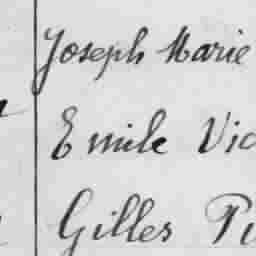 Joseph Marie
Emile Vic
Gilles Pi